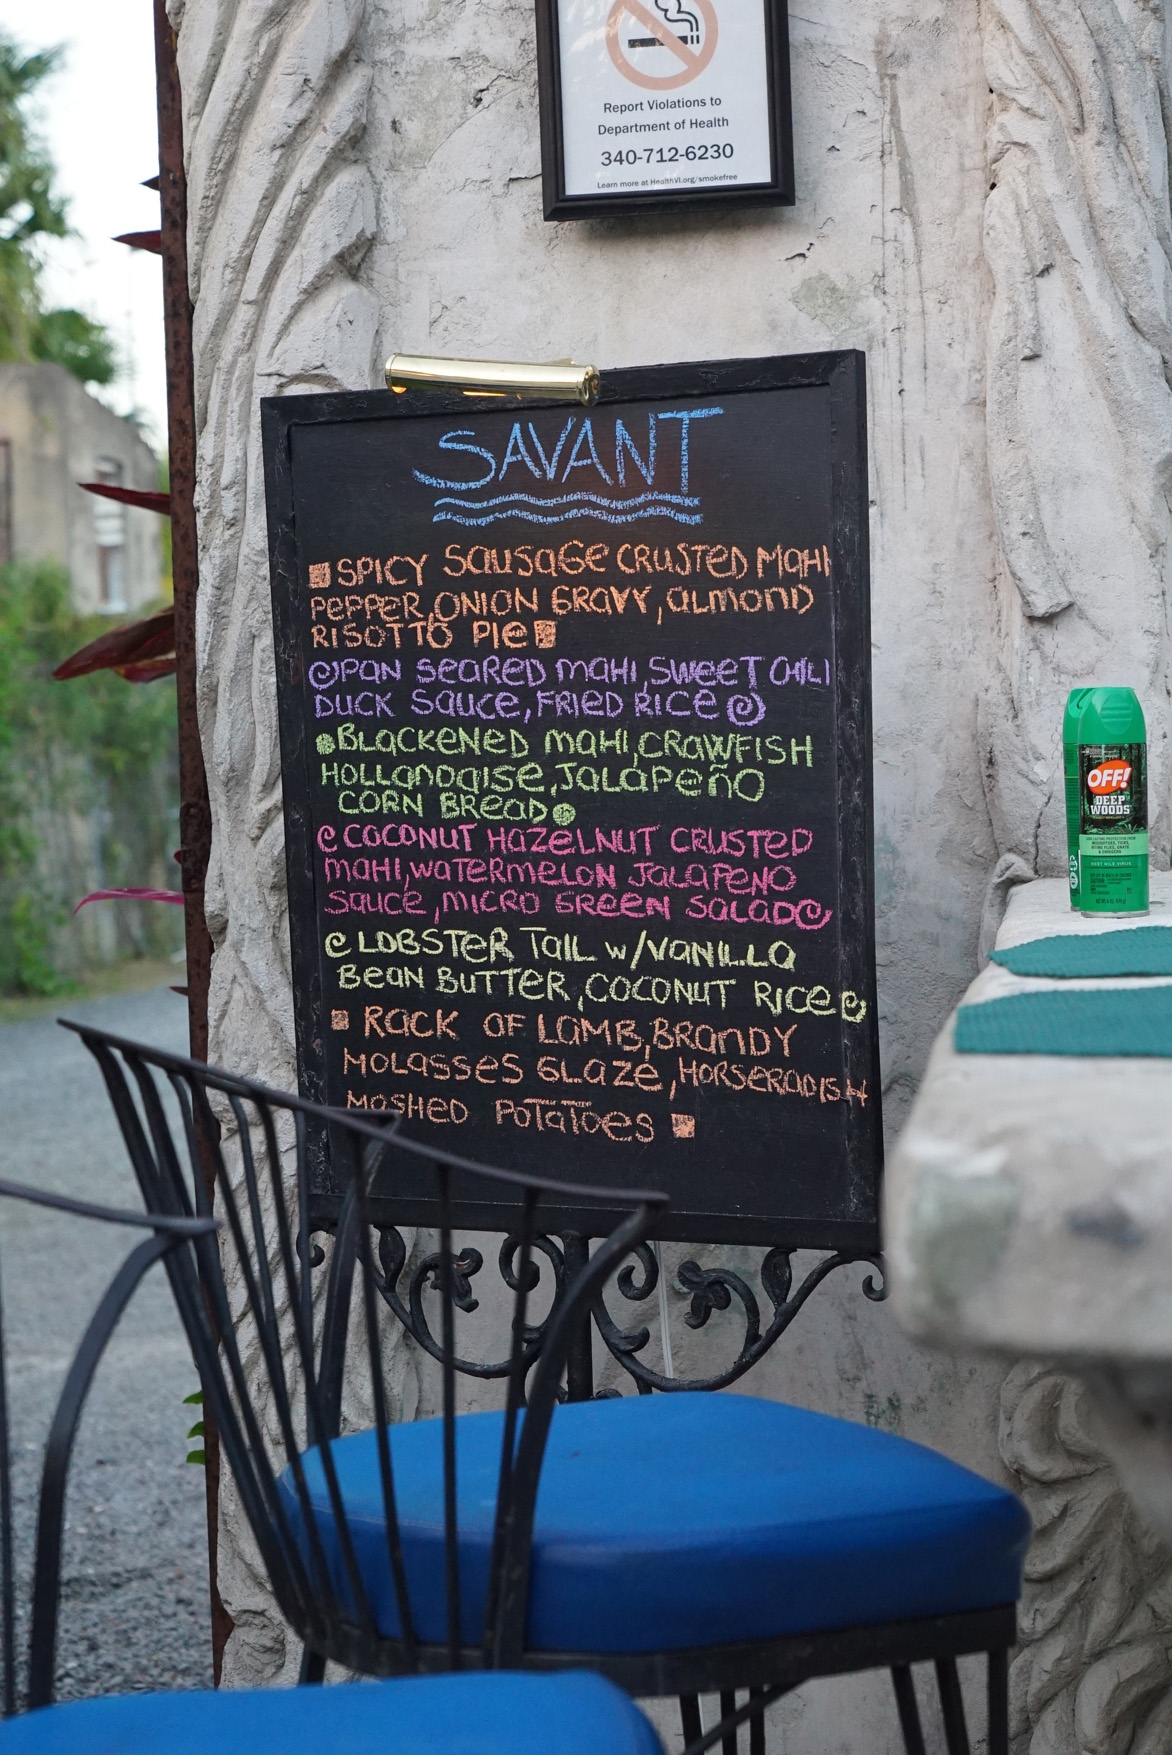 Report Violations to
Department of Health
340-712-6230
Learn more at HealthVI.org/smokefree
SAVANT
SPICY SAUSAGE CRUSTED MAHI
PEPPER, ONION GRAVY, ALMOND
RISOTTO PIE
PAN SEARED MAHI, SWEET CHILI
DUCK SAUCE, FRIED RICE
BLACKENED MAHI, CRAWFISH
HOLLANDAISE, JALAPEÑO
CORN BREAD
COCONUT HAZELNUT CRUSTED
MAHI, WATERMELON JALAPENO
SAUCE, MICRO GREEN SALAD
LOBSTER TAIL W/VANILLA
BEAN BUTTER, COCONUT RICE
RACK OF LAMB, BRANDY
MOLASSES GLAZE, HORSERADISH
MASHED POTATOES
OFF!
DEEP
WOODS